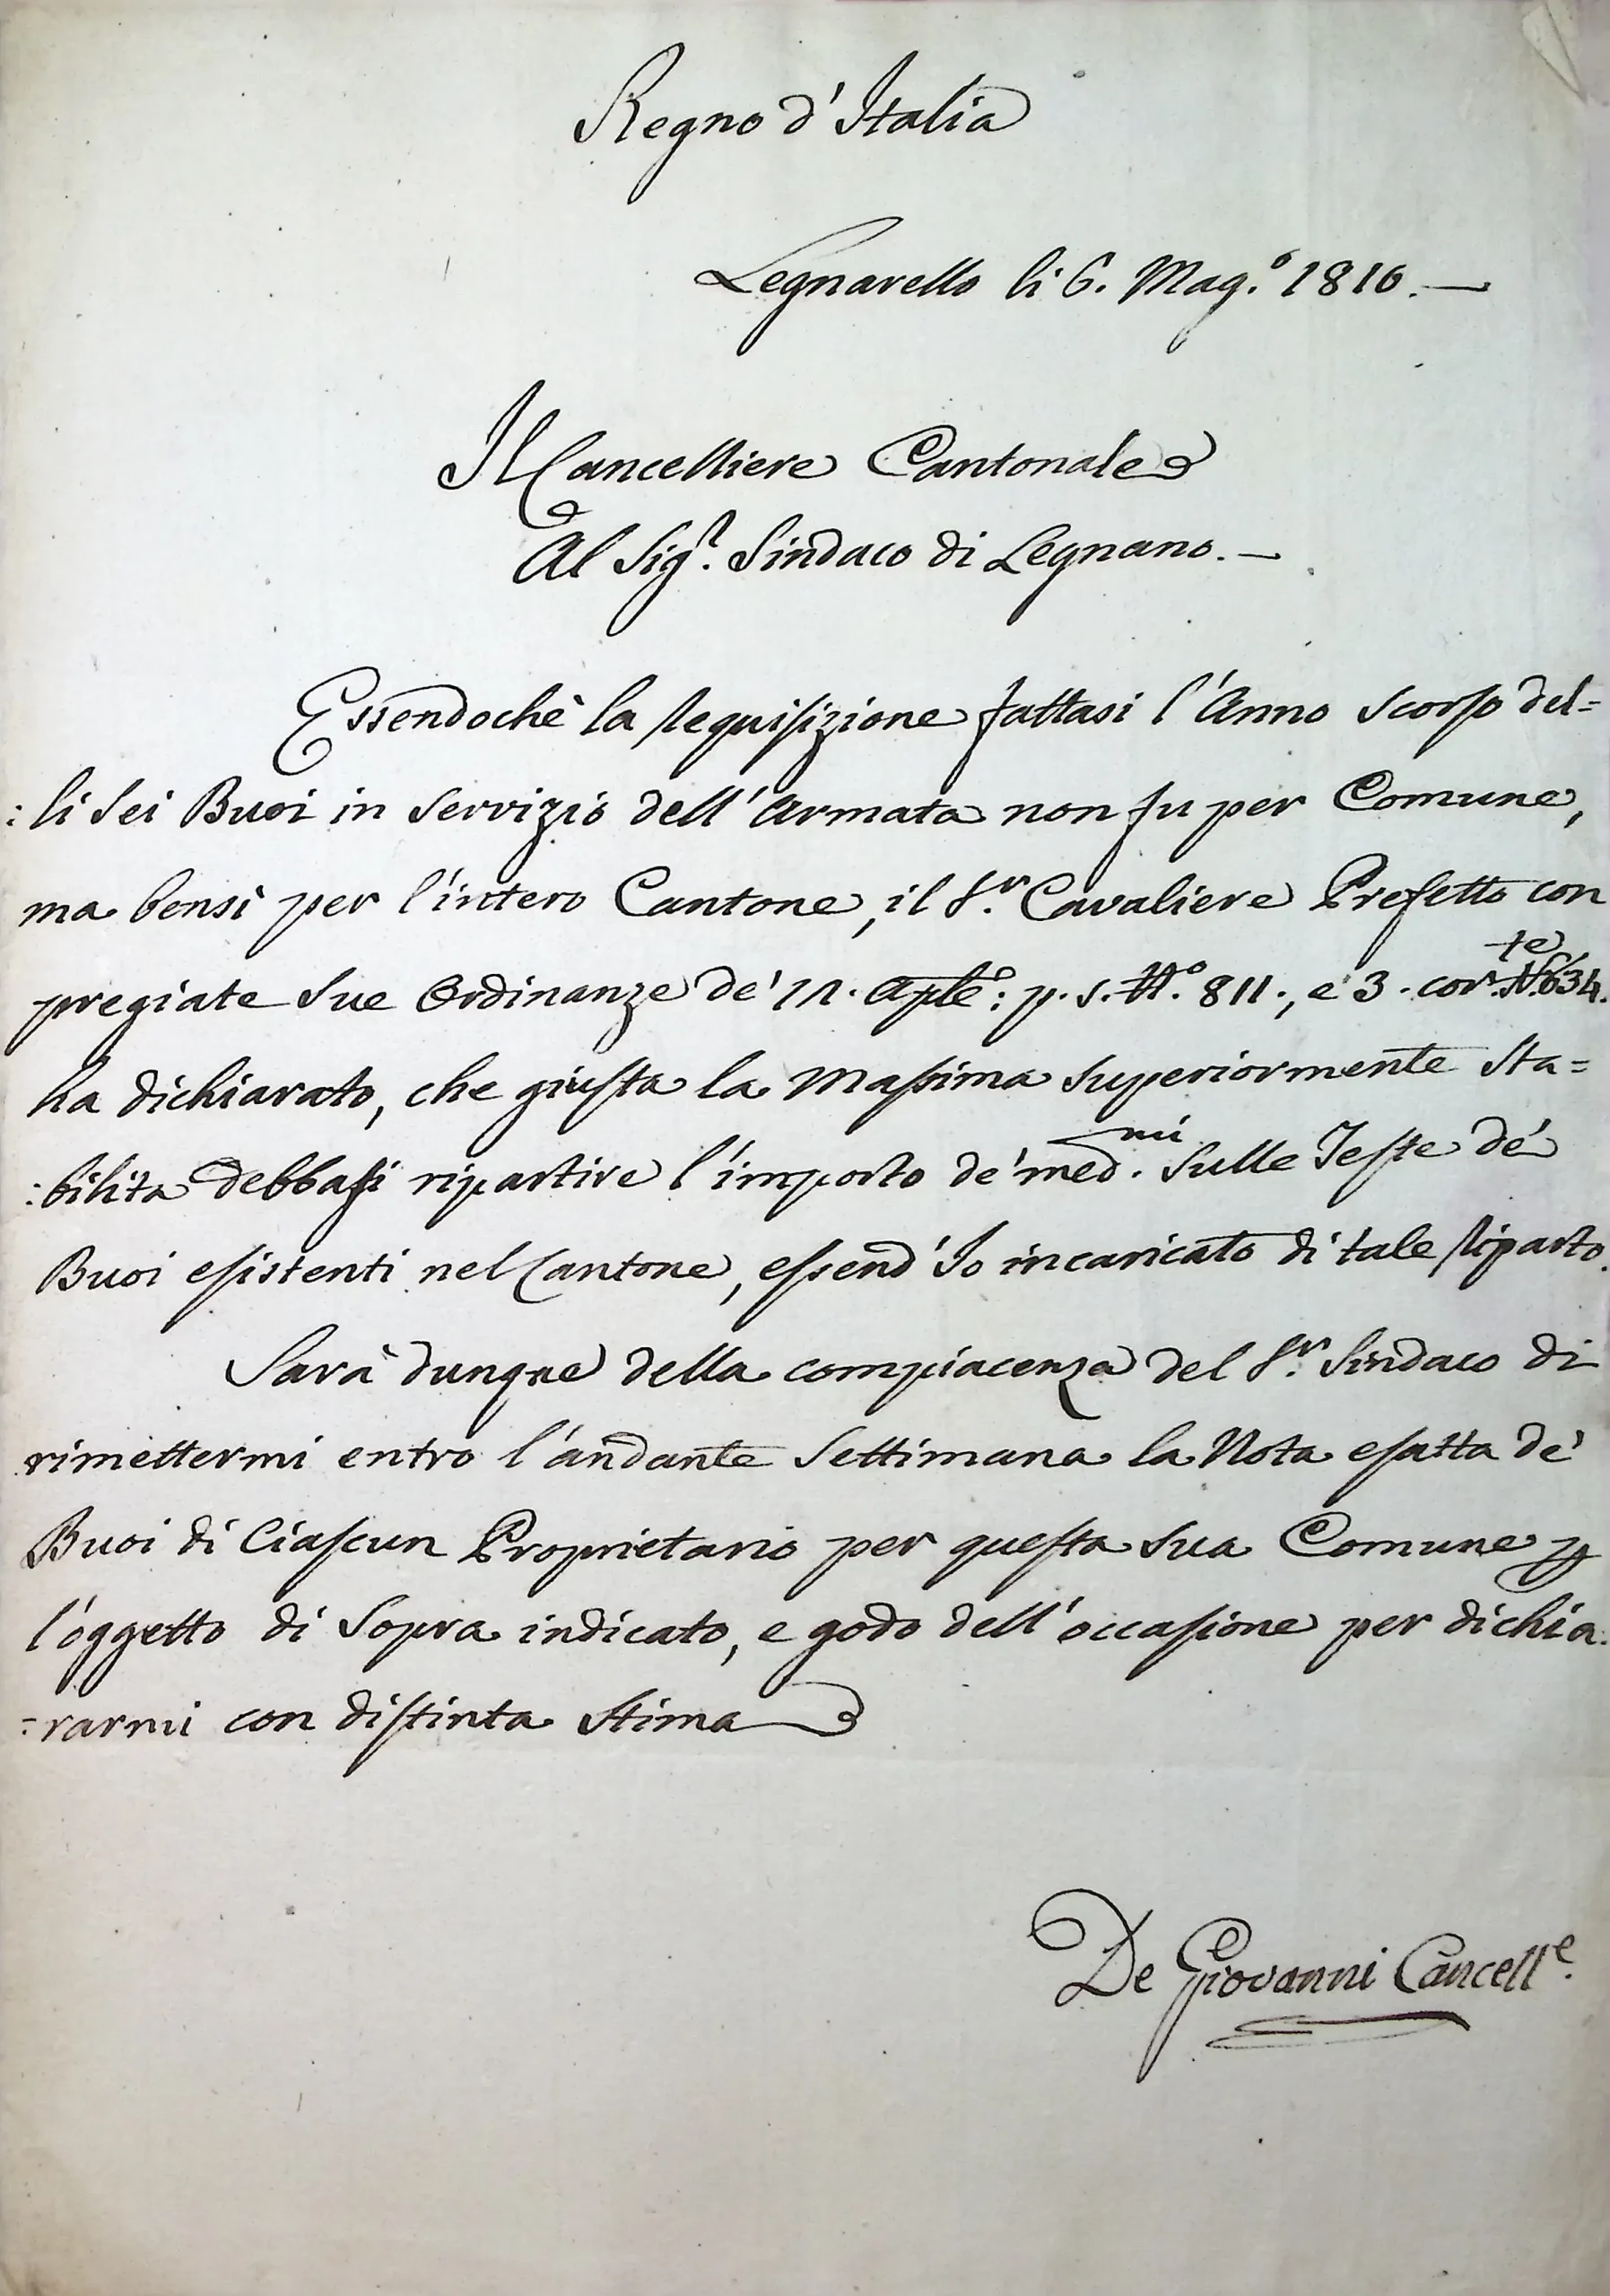 Regno d'Italia
Legnarello li 6. Mag.º 1810. —
Il Cancelliere Cantonale
Al Sig.r Sindaco di Legnano. —
Essendochè la requisizione fattasi l'Anno scorso del=
:li sei Buoi in servizio dell'Armata non fu per Comune,
ma bensì per l'intero Cantone, il S.r Cavaliere Prefetto con
pregiate sue Ordinanze de' Aple: p. s. N.º 811., e 3. cor.te N.
ha dichiarato, che giusta la Massima superiormente sta=
:bilita debbasi ripartire l'importo de' med.mi sulle Teste de'
Buoi esistenti nel Cantone, essend'Io incaricato di tale riparto.
Sarà dunque della compiacenza del S.r Sindaco di
rimettermi entro l'andante Settimana la Nota esatta de'
Buoi di Ciascun Proprietario per questa sua Comune p
l'oggetto di sopra indicato, e godo dell'occasione per dichia:
=rarmi con distinta stima
De Giovanni Cancell.e